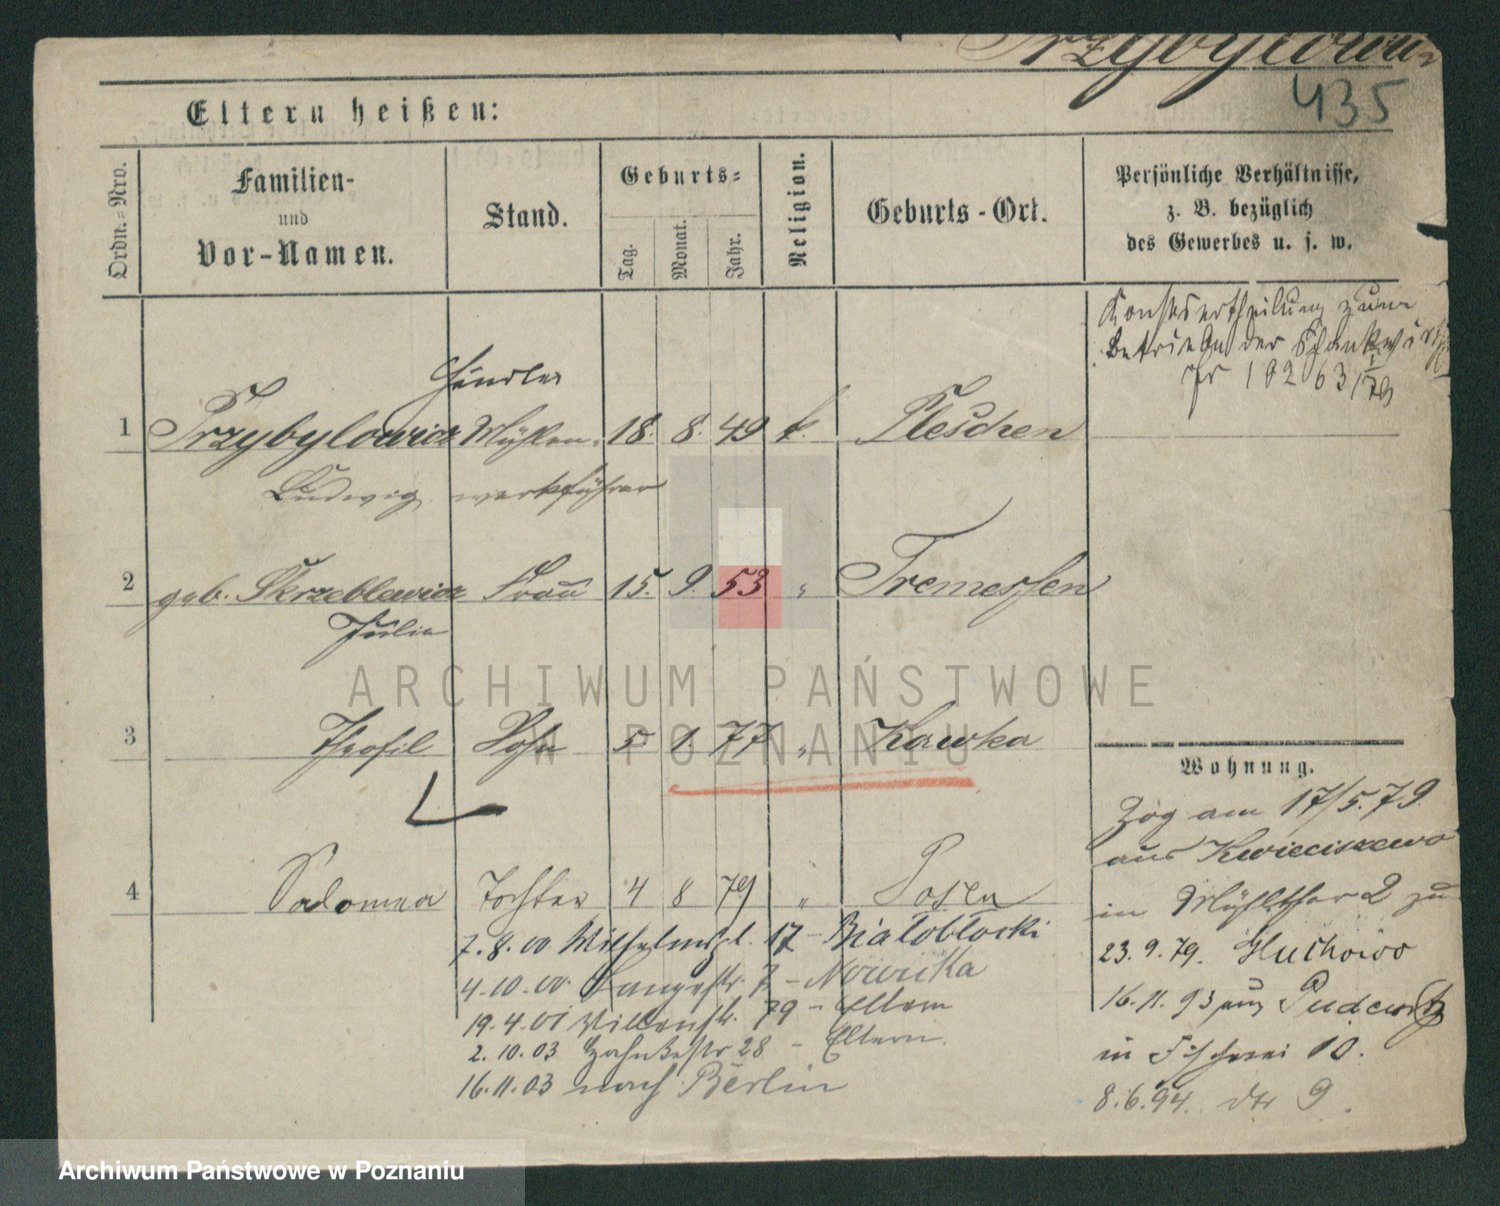 Przybylowicz
435
Eltern heißen:
Ordn.=Nro.
Familien-
und
Vor-Namen.
Stand.
Geburts=
Tag.
Monat.
Jahr.
Religion.
Geburts-Ort.
Persönliche Verhältnisse,
z. B. bezüglich
des Gewerbes u. s. w.
Konsensertheilung zum
Betriebe der Schankwirthsch
Händler
1 Przybylowicz Mühlen- 18. 8. 49 k. Pleschen
Ludwig werkführer
2 geb. Skrzeblewicz Frau 15. 9. 53 " Tremessen
Julia
3 Theofil Sohn 5. 1. 77 " Kawka
4 Salomea Tochter 4 8 79 " Posen
7.8.00 Wilhelmspl. 17 - Białobłocki
4.10.00 Langestr. 7 - Nowicka
19.4.01 Victoriastr. 79 - Eltern
2.10.03 28 - Eltern.
16.11.03 nach Berlin
Wohnung.
Zog am 17/5.79.
aus Kwieciszewo
in Mühlthor 2 zu
23.9.79. Gluchowo
16.11.93 aus Pudewitz
in Fischerei 10.
8.6.94. dto 9.
ARCHIWUM PAŃSTWOWE
W POZNANIU
Archiwum Państwowe w Poznaniu